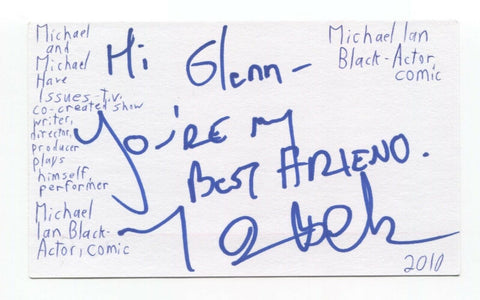 Michael
and
Michael
Have
Issues-t.v.
co-created show
writer,
director,
producer
plays
himself,
performer
Michael
Ian Black-
Actor, comic
Hi Glenn-
You're my
Best Friend.
Michael Ian
Black-Actor,
comic
2010